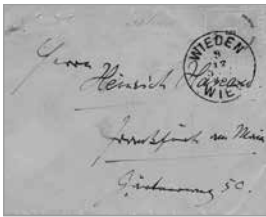 WIEDEN
WIE
Herrn
Heinrich
Frankfurt am Main
Gärtnerweg 50.